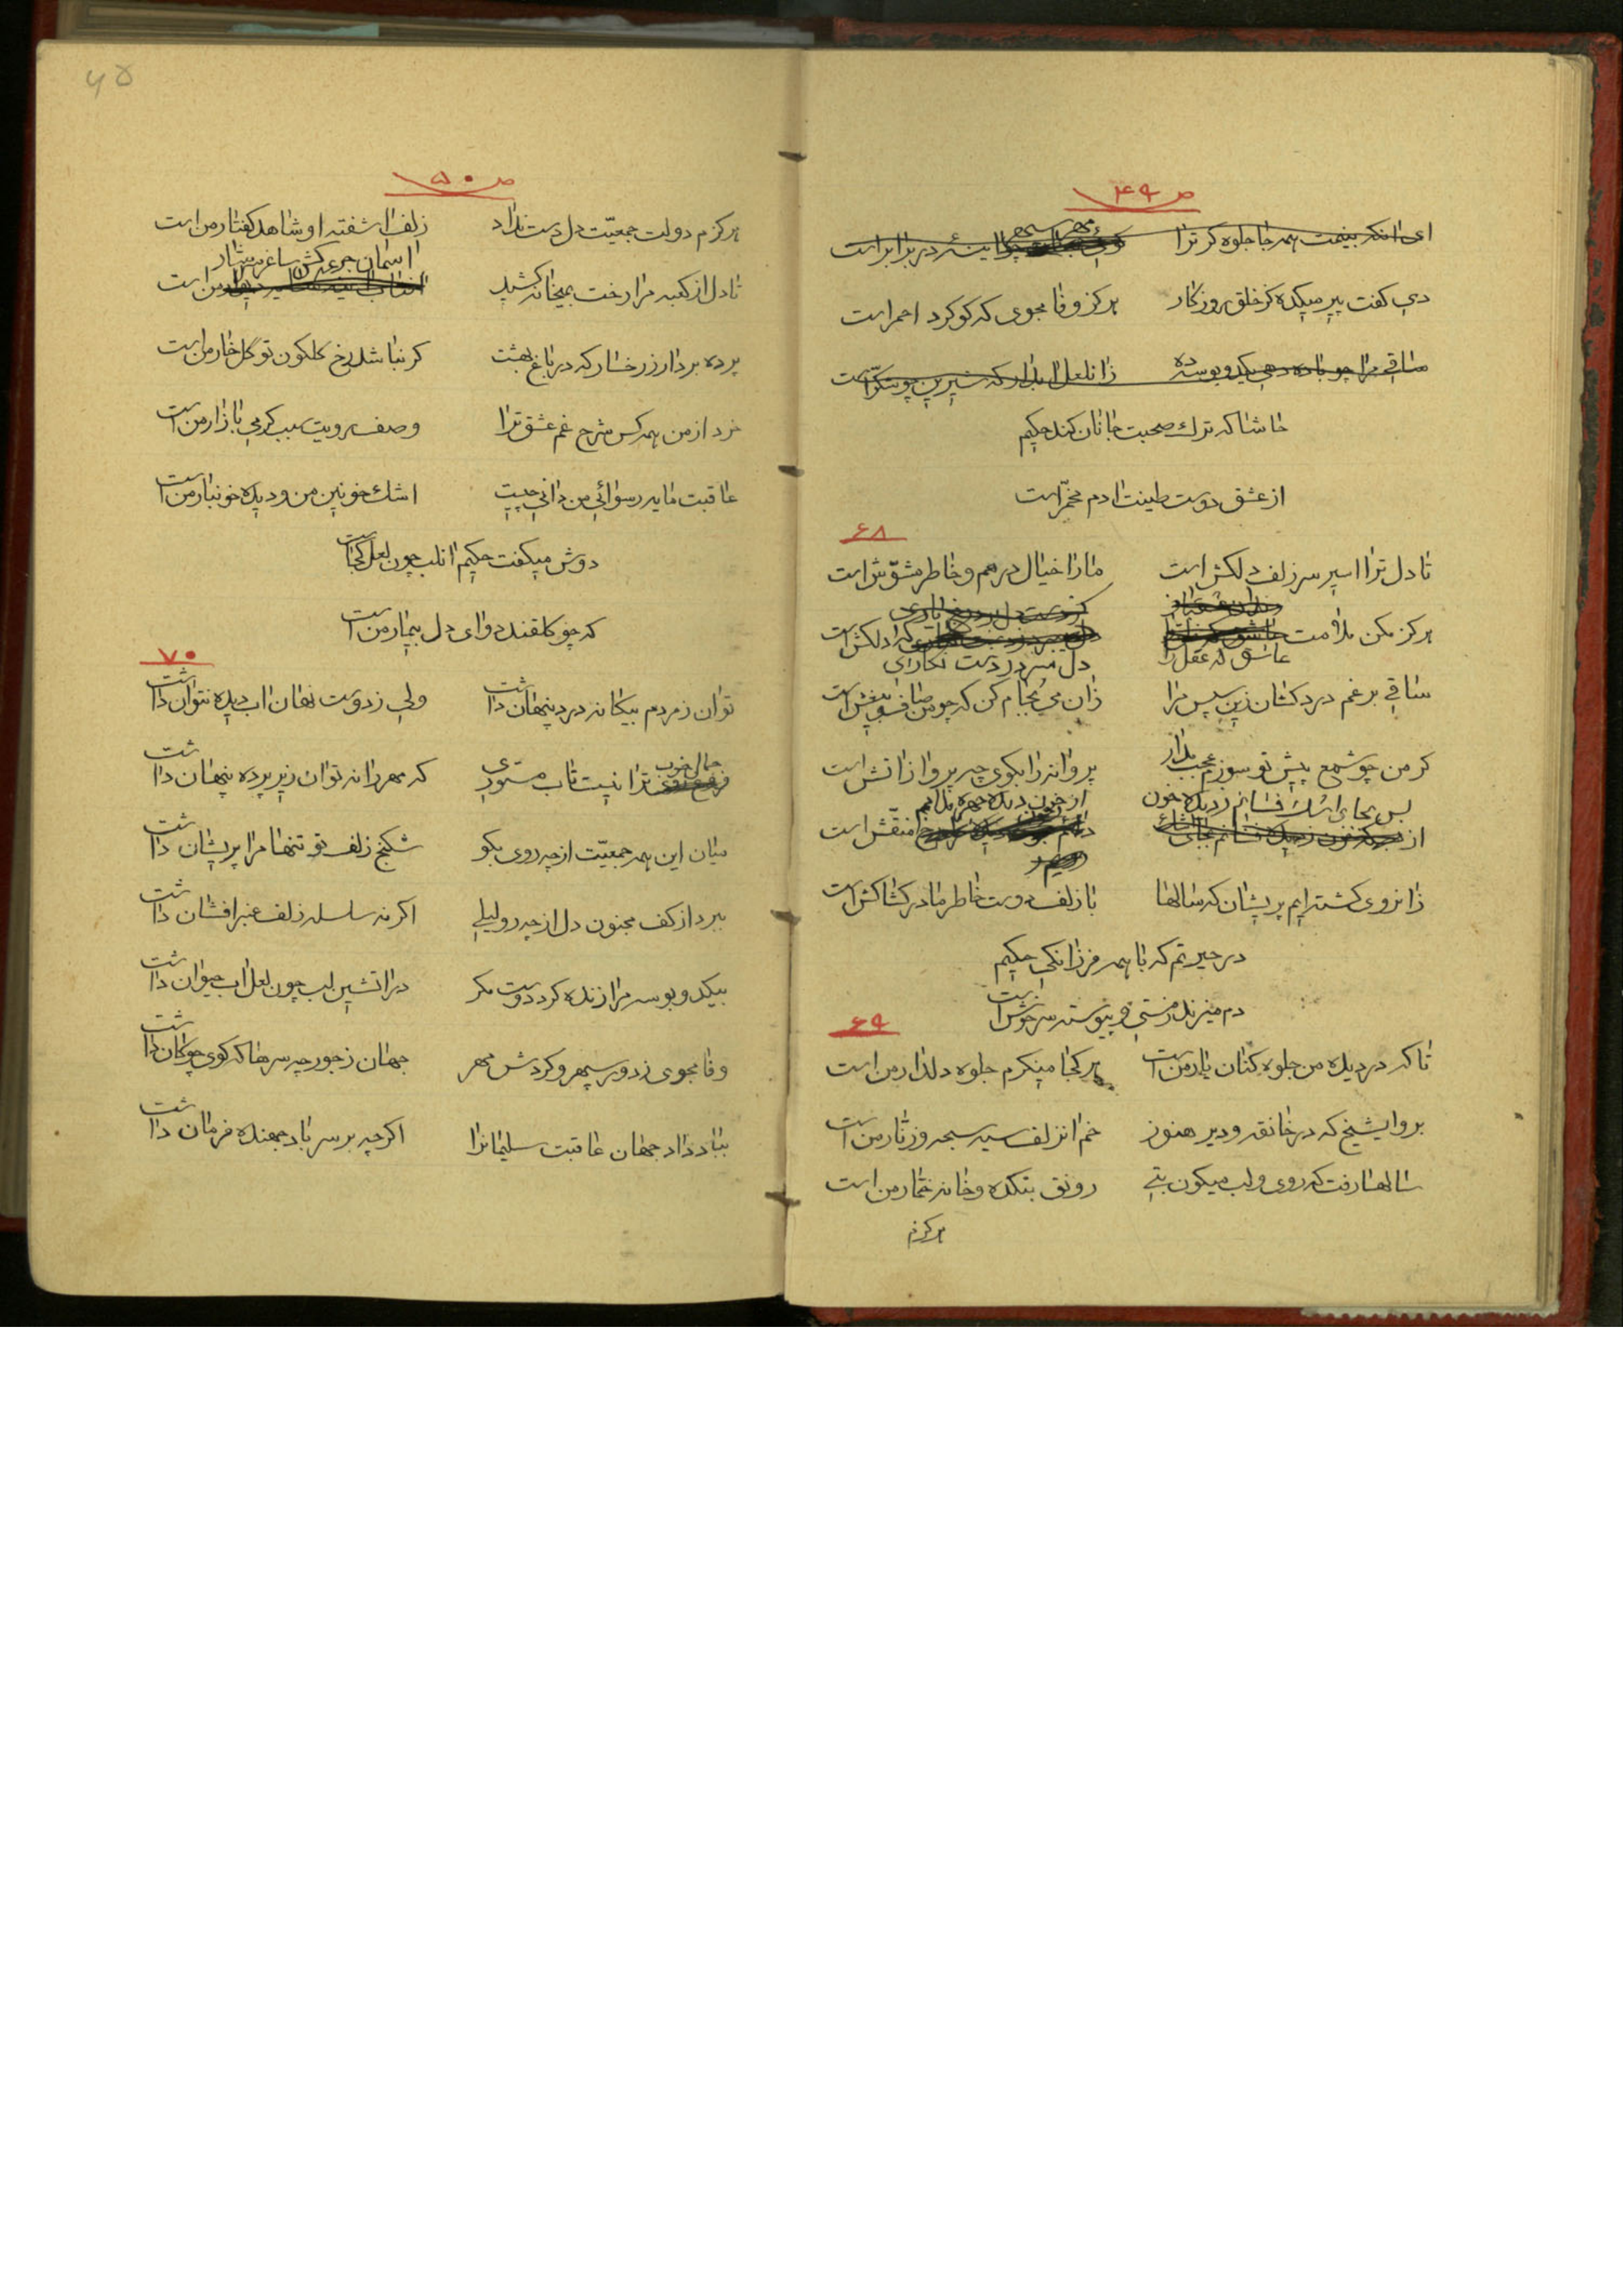 ص ۴۹
ای انکه بینمت همه جا جلوه کر ترا
مهر سپهر
اینهٔ در برابر است
دی کفت پیر میکده کز خلق روزکار
هرکز وفا مجوی که کوکرد احمر است
ساقی مرا چو باده دهی یکدو بوسه ده
زانلعل ابدار که شیرین چو شکر است
حاشا که ترك صحبت جانان کند حکیم
از عشق دوست طینت ادم مخمّر است
۶۸
تا دل ترا اسیر سر زلف دلکش است
ما را خیال درهم و خاطر مشوّش است
هرکز مکن ملامت
عاشق که عقل را
که دلکش است
دل میبرد ز دست نکاری
ساقی برغم دردکشان زین سپس مرا
زان می بجام کن که چو من صاف و بیغش است
کر من چو شمع پیش تو سوزم عجب مدار
پروانه را بکوی چه پروا ز اتش است
بس بجای اشك فشانم ز دیده خون
از
از خون دیده چهره مدامم
منقّش است
زانروی کشته ایم پریشان که سالها
با زلف دوست خاطر ما در کشاکش است
در حیرتم که با همه فرزانکی حکیم
دم میزند ز مستی و پیوسته سرخوش است
۶۹
تا که در دیده من جلوه کنان یار من است
هر کجا مینکرم جلوه دلدار من است
برو ایشیخ که در خانقه و دیر هنوز
خم انزلف سیه سبحه و زنار من است
سالها رفت که روی و لب میکون بتی
رونق بتکده و خانه خمّار من است
هرکزم
ص ۵۰
هرکزم دولت جمعیّت دل دست نداد
زلف اشفته او شاهد کفتار من است
تا دل از کعبه مرا رخت بمیخانه کشید
اسمان جرعه کش ساغر سرشار
من است
پرده بردار ز رخسار که در باغ بهشت
کر نباشد رخ کلکون تو گل خار من است
خرد از من همه کس شرح غم عشق ترا
وصف رویت سبب کرمی بازار من است
عاقبت مایه رسوائی من دانی چیست
اشك خونین من و دیده خونبار من است
دوش میکفت حکیم انلب چون لعل کجاست
که چو کلقند دوای دل بیمار من است
۷۰
توان ز مردم بیکانه درد پنهان داشت
ولی ز دوست نهان اب دیده نتوان داشت
جمال خوب
ترا نیست تاب مستوری
که مهر را نه توان زیر پرده پنهان داشت
میان این همه جمعیّت از چه روی بکو
شکنج زلف تو تنها مرا پریشان داشت
ببرد از کف مجنون دل از چه رو لیلی
اکر نه سلسله زلف عنبر افشان داشت
بیکدو بوسه مرا زنده کرد دوست مکر
در اتشین لب چون لعل اب حیوان داشت
وفا مجوی ز دور سپهر و کردش مهر
جهان ز جور چه سرها که کوی چوکان داشت
بباد داد جهان عاقبت سلیمانرا
اکرچه بر سر باد جهنده فرمان داشت